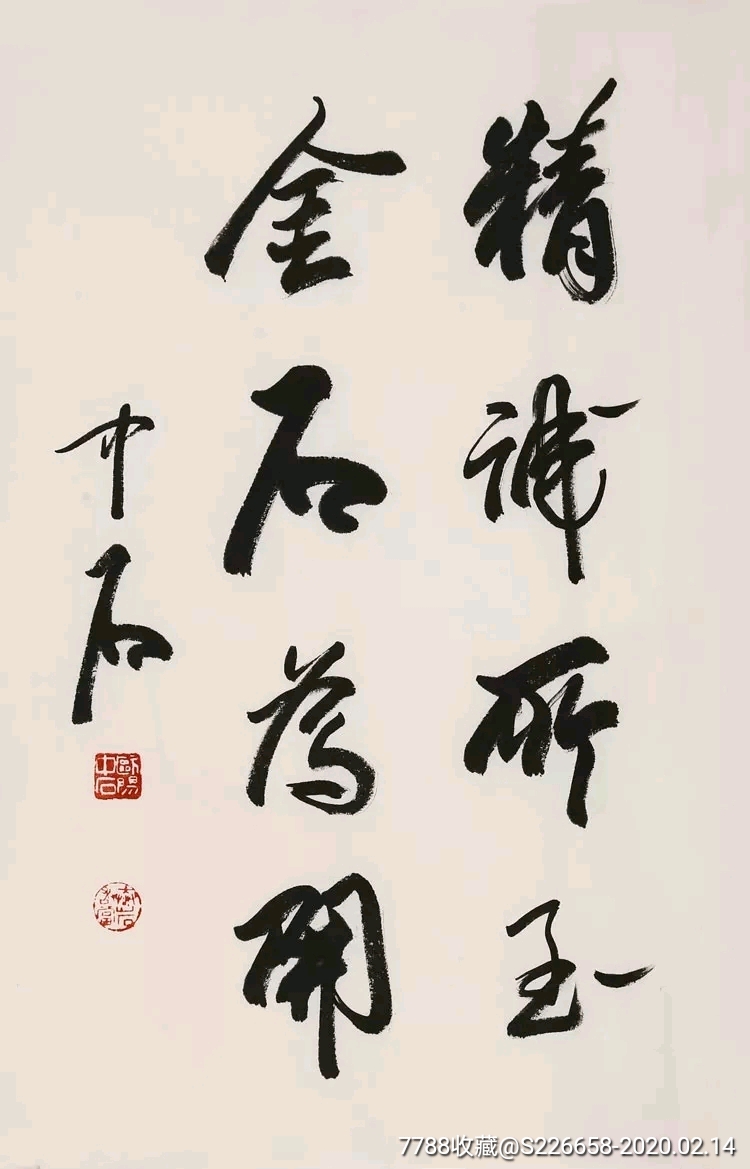 精诚所至
金石為開
中石
歐陽中石
7788收藏@S226658-2020.02.14